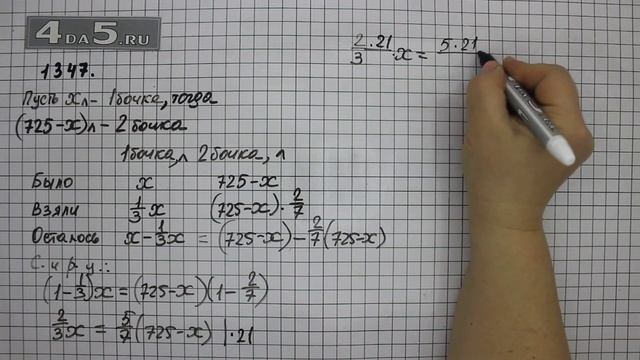 4DA5.RU
1347.
Пусть x л - 1 бочка, тогда
(725-x) л - 2 бочка
1 бочка, л 2 бочка, л
Было x 725-x
Взяли 1/3 x (725-x)·2/7
Осталось x-1/3x = (725-x)-2/7(725-x)
С. и р. у.:
(1-1/3)x = (725-x)(1-2/7)
2/3x = 5/7(725-x) |·21
2·21/3 ·x = 5·21